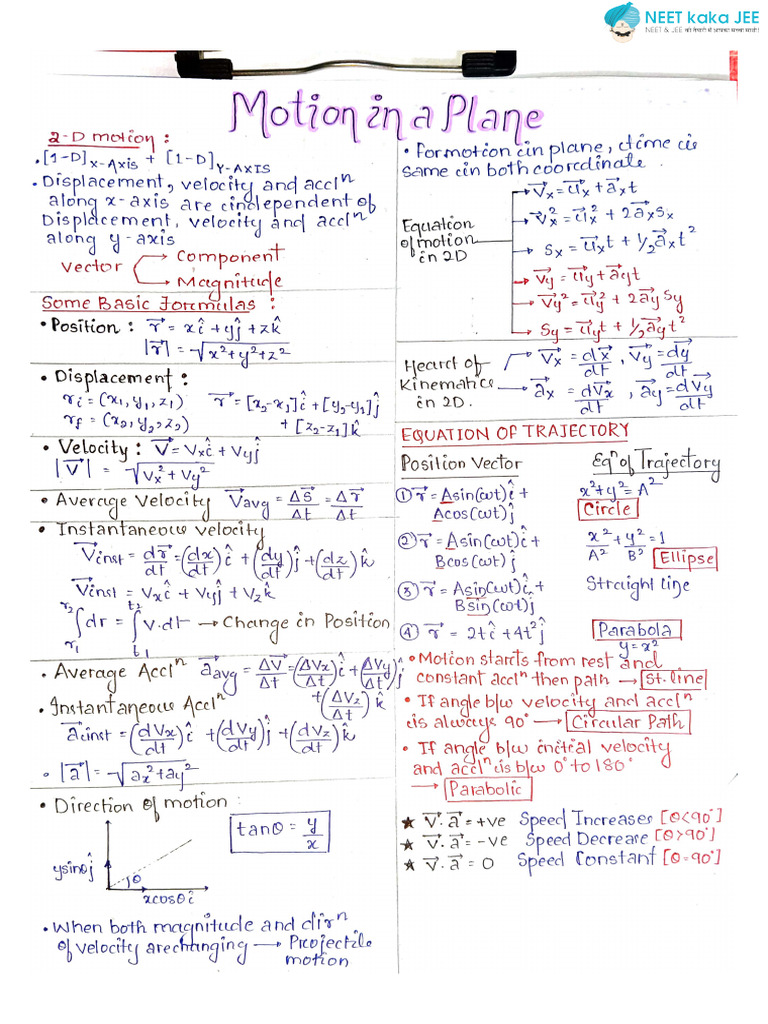 NEET kaka JEE
NEET & JEE की तैयारी से आपका सच्चा साथी!
Motion in a Plane
2-D motion :
• [1-D]x-Axis + [1-D]Y-AXIS
• Displacement, velocity and acclⁿ
along x-axis are independent of
Displacement, velocity and acclⁿ
along y-axis
vector
Component
Magnitude
Some Basic Formulas :
• Position : r⃗ = xî + yĵ + zk̂
|r⃗| = √(x²+y²+z²)
• Displacement :
rᵢ = (x₁, y₁, z₁) r⃗ = [x₂-x₁]î + [y₂-y₁]ĵ
r_f = (x₂, y₂, z₂) + [z₂-z₁]k̂
• Velocity : V⃗ = Vxî + Vyĵ
|V⃗| = √(Vx² + Vy²)
• Average Velocity V⃗avg = Δs⃗/Δt = Δr⃗/Δt
• Instantaneous velocity
V⃗inst = dr⃗/dt = (dx/dt)î + (dy/dt)ĵ + (dz/dt)k̂
V⃗inst = Vxî + Vyĵ + Vzk̂
∫r₁^r₂ dr = ∫t₁^t₂ v.dt → Change in Position
• Average Acclⁿ a⃗avg = ΔV⃗/Δt = (ΔVx/Δt)î + (ΔVy/Δt)ĵ
+ (ΔVz/Δt)k̂
• Instantaneous Acclⁿ
a⃗inst = (dVx/dt)î + (dVy/dt)ĵ + (dVz/dt)k̂
• |a⃗| = √(ax² + ay²)
• Direction of motion :
tanθ = y/x
ysinθĵ
θ
xcosθî
• When both magnitude and dirⁿ
of velocity are changing → Projectile
motion
• For motion in plane, time is
same in both coordinate.
Equation
of motion
in 2D
V⃗x = u⃗x + a⃗xt
V⃗x² = u⃗x² + 2a⃗xsx
Sx = u⃗xt + 1/2 a⃗xt²
V⃗y = u⃗y + a⃗yt
V⃗y² = u⃗y² + 2a⃗y Sy
Sy = u⃗yt + 1/2 a⃗yt²
Heart of
Kinematics
in 2D.
V⃗x = dx⃗/dt, V⃗y = dy⃗/dt
a⃗x = dV⃗x/dt, a⃗y = dV⃗y/dt
EQUATION OF TRAJECTORY
Position Vector Eqⁿ of Trajectory
① r⃗ = Asin(ωt)î + x²+y² = A²
Acos(ωt)ĵ Circle
② r⃗ = Asin(ωt)î + x²/A² + y²/B² = 1
Bcos(ωt)ĵ Ellipse
③ r⃗ = Asin(ωt)î + Straight line
Bsin(ωt)ĵ
④ r⃗ = 2tî + 4t²ĵ Parabola
y = x²
• Motion starts from rest and
constant acclⁿ then path → St. line
• If angle b/w velocity and acclⁿ
is always 90° → Circular Path
• If angle b/w initial velocity
and acclⁿ is b/w 0° to 180°
→ Parabolic
★ V⃗.a⃗ = +ve Speed Increases [θ<90°]
★ V⃗.a⃗ = -ve Speed Decrease [θ>90°]
★ V⃗.a⃗ = 0 Speed Constant [θ=90°]